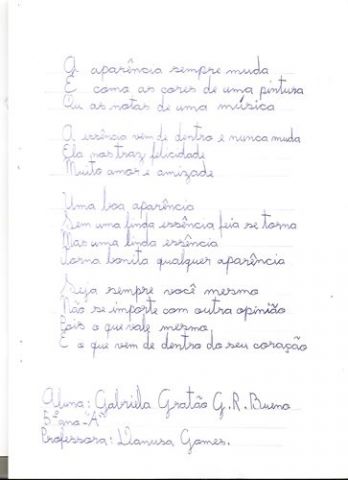 A aparência sempre muda
É como as cores de uma pintura
Ou as notas de uma música
A essência vem de dentro e nunca muda
Ela nos traz felicidade
Muito amor e amizade
Uma boa aparência
Sem uma linda essência feia se torna
Mas uma linda essência
Torna bonita qualquer aparência
Seja sempre você mesmo
Não se importe com outra opinião
Pois o que vale mesmo
É o que vem de dentro do seu coração
Aluna: Gabriela Gratão G. R. Bueno
5º ano "A"
Professora: Vanusa Gomes.